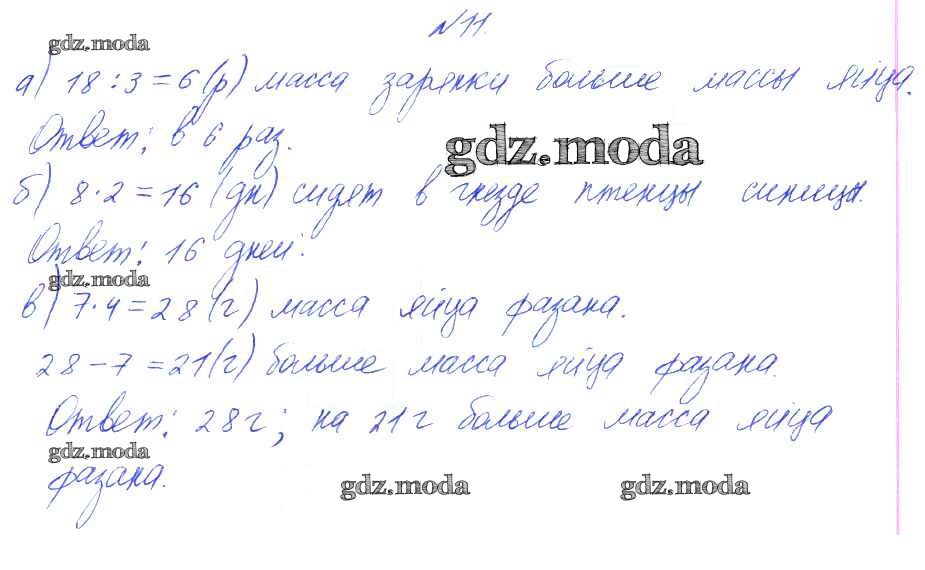 №11.
gdz.moda
а) 18:3=6(р) масса зарянки больше массы яйца.
Ответ: в 6 раз.
gdz.moda
б) 8·2=16 (дн) сидят в гнезде птенцы синицы.
Ответ: 16 дней.
gdz.moda
в) 7·4=28(г) масса яйца фазана.
28-7=21(г) больше масса яйца фазана.
Ответ: 28г; на 21г больше масса яйца
gdz.moda
фазана.
gdz.moda gdz.moda